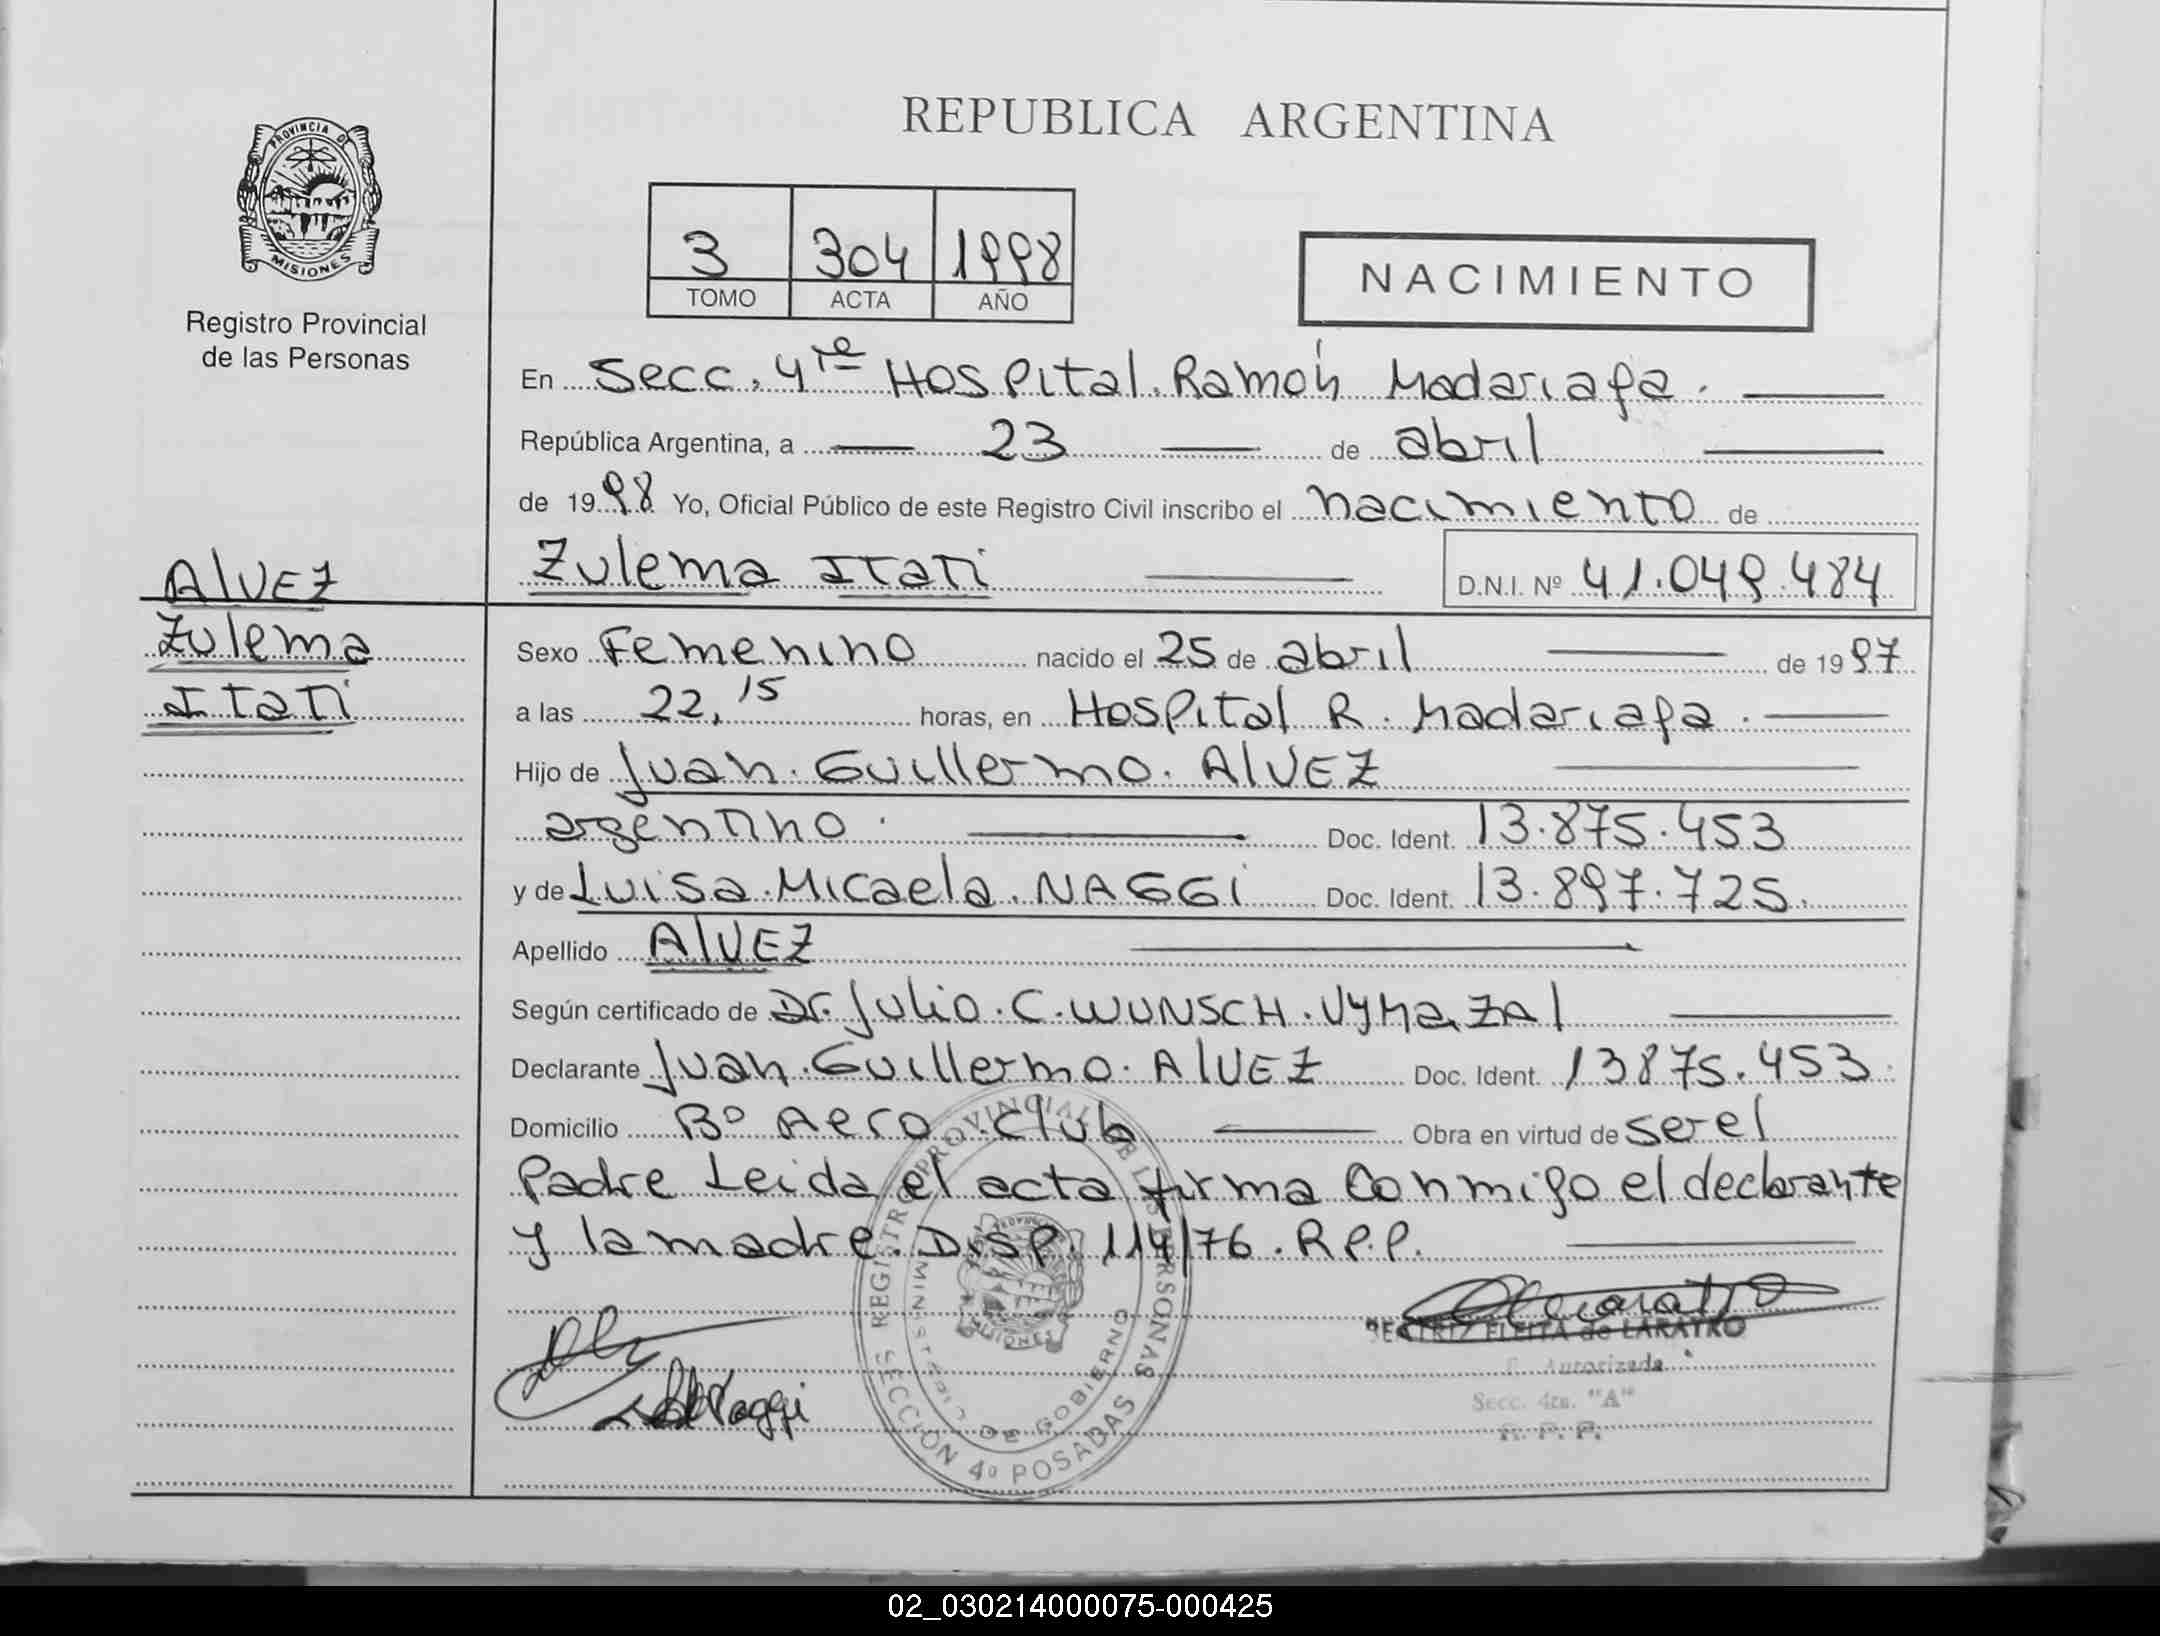 REPUBLICA ARGENTINA
PROVINCIA DE
MISIONES
Registro Provincial
de las Personas
3 304 1998
TOMO ACTA AÑO
NACIMIENTO
En Secc. 4ta Hospital Ramón Madariaga.
República Argentina, a 23 de abril
de 1998 Yo, Oficial Público de este Registro Civil inscribo el nacimiento de
Zulema Itati D.N.I. Nº 41.049.484
AlVEZ
Zulema
Itati
Sexo Femenino nacido el 25 de abril de 1997
a las 22,15 horas, en Hospital R. Madariaga.
Hijo de Juan Guillermo AlVEZ
argentino. Doc. Ident. 13.875.453
y de Luisa Micaela NAGGi Doc. Ident. 13.897.725.
Apellido AlVEZ
Según certificado de Dr. Julio C. WUNSCH VyMaZAl
Declarante Juan Guillermo AlVEZ Doc. Ident. 13875.453.
Domicilio Bº Aero club Obra en virtud de ser el
Padre Leida el acta firma Conmigo el declarante
y la madre. Disp. 114/76. R.P.P.
REGISTRO PROVINCIAL DE LAS PERSONAS
MINISTERIO DE GOBIERNO
SECCION 4º POSADAS
MISIONES
Naggi
BEATRIZ FLEITA de LARATRO
F. Autorizada
Secc. 4ta. "A"
R. P. P.
02_030214000075-000425